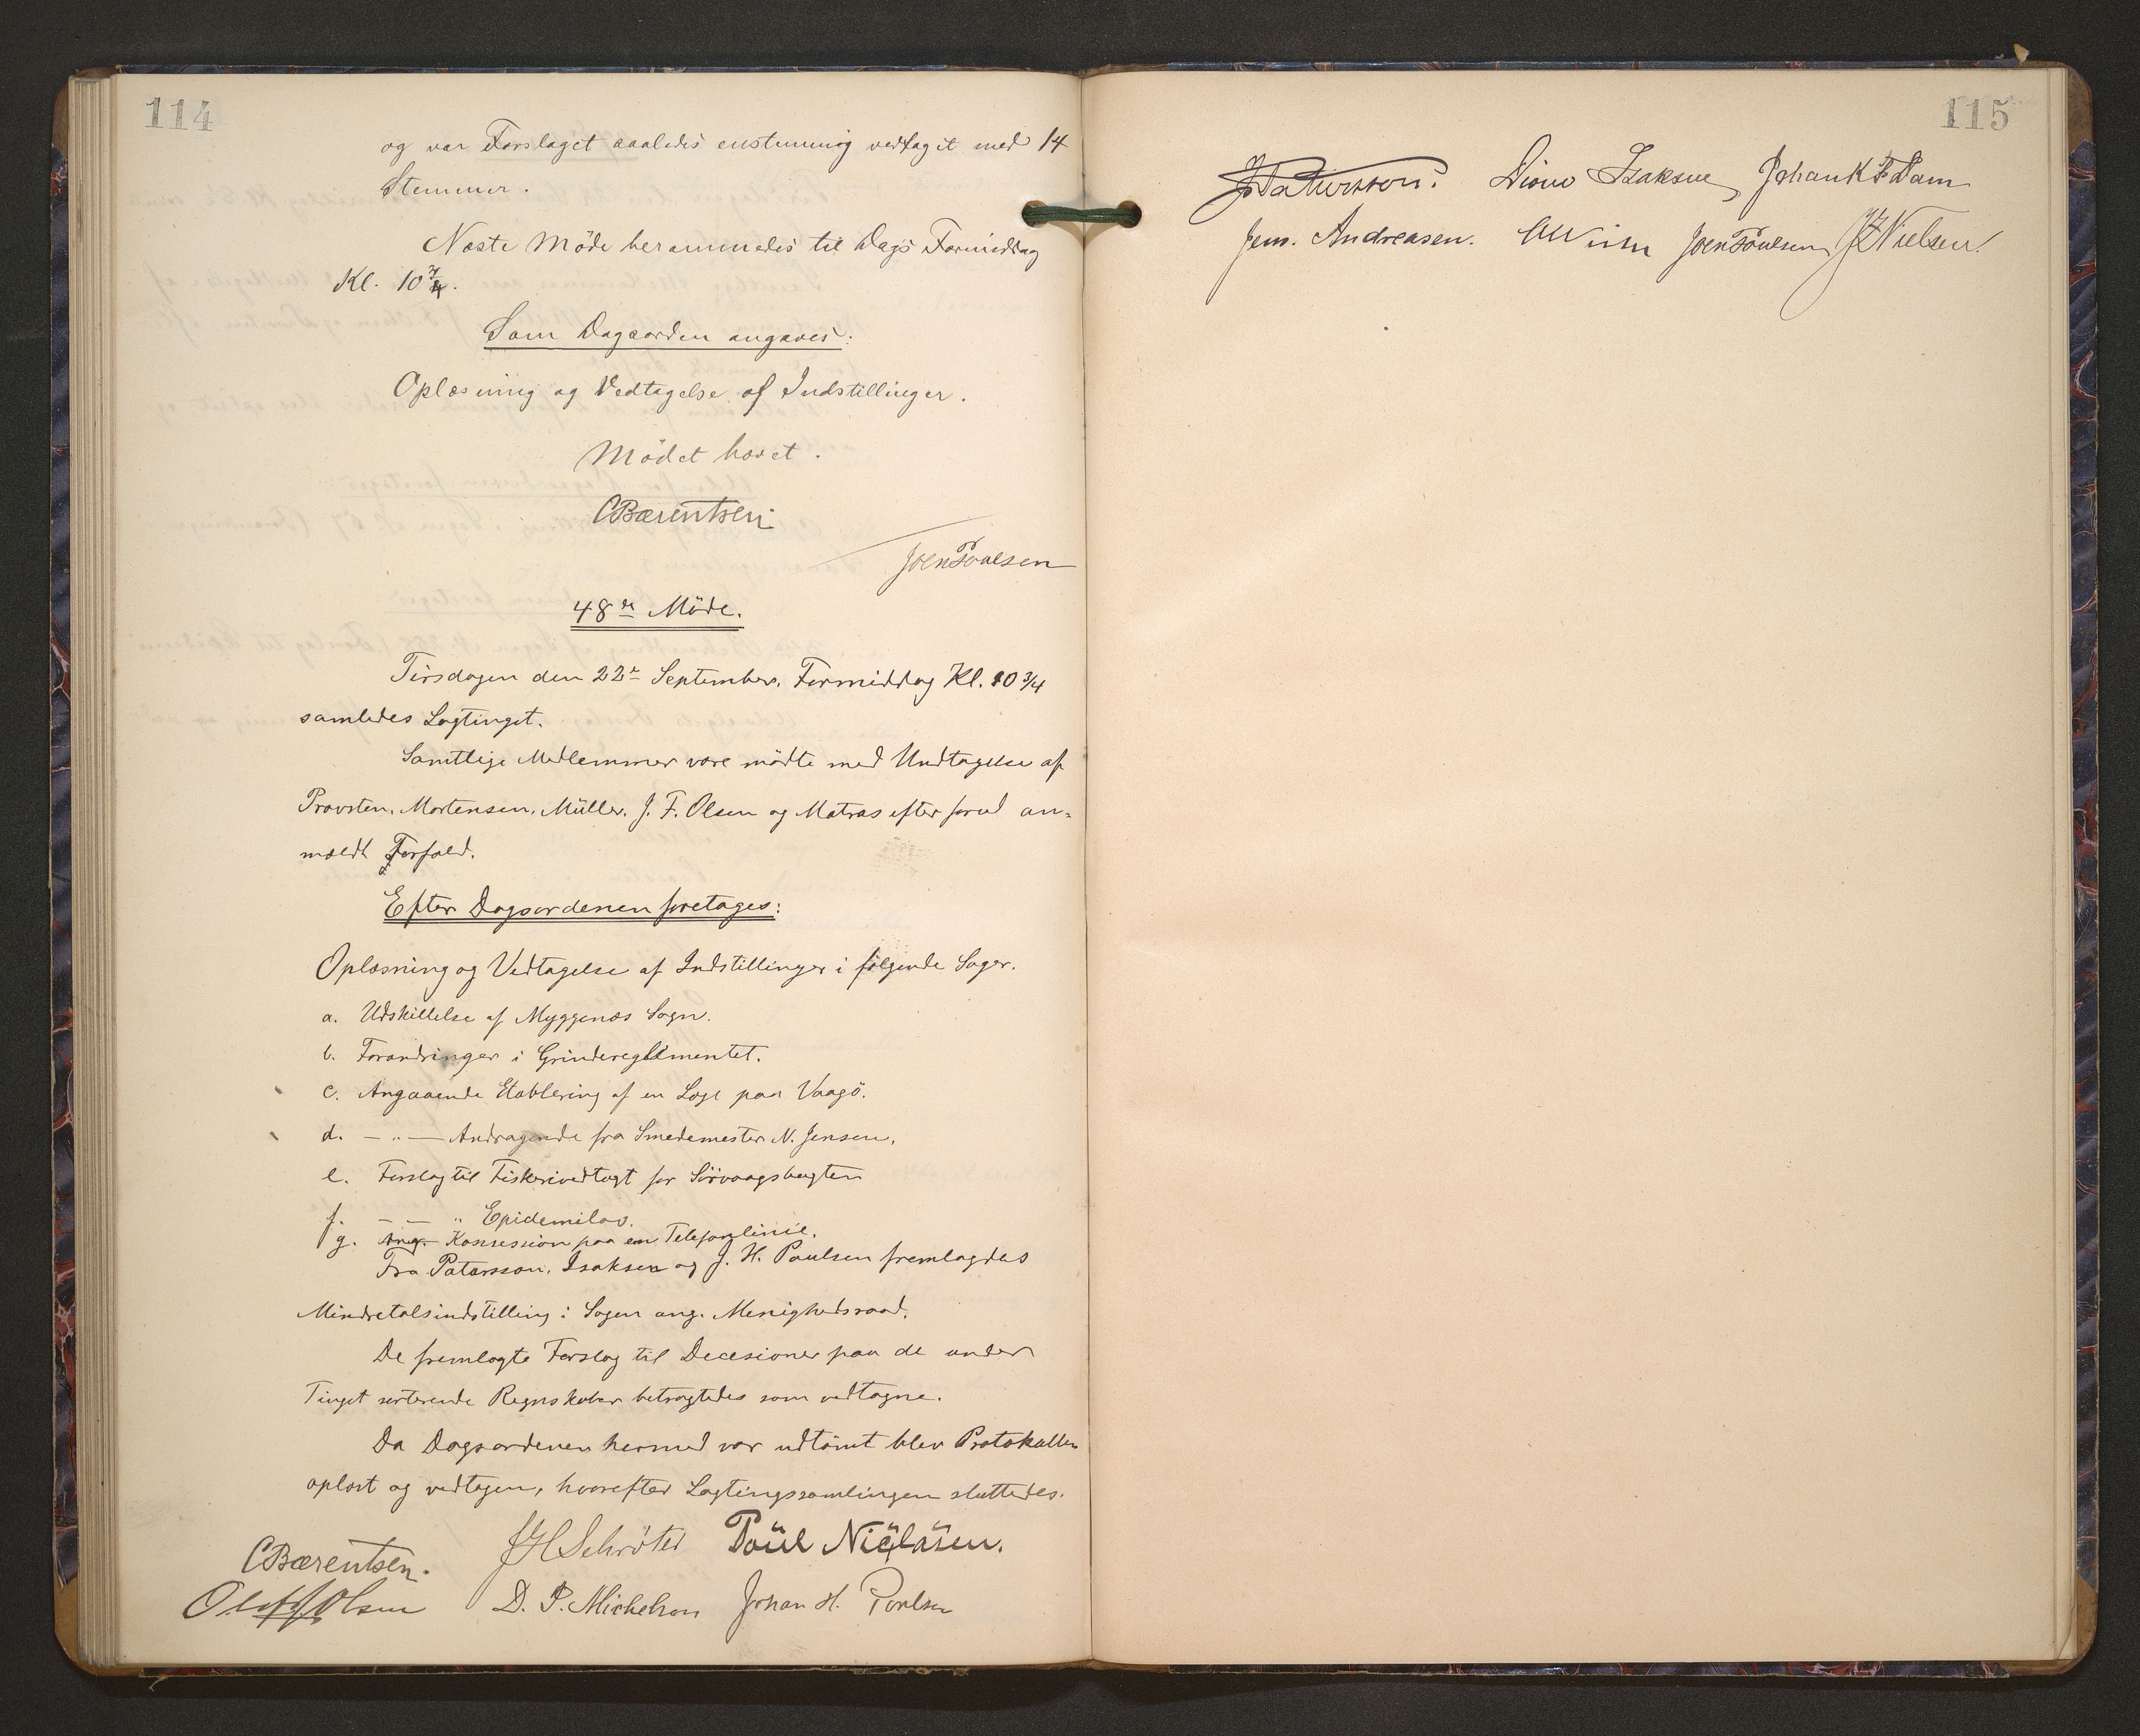 114
og var Forslaget saaledes enstemmig vedtaget med 14
Stemmer.
Næste Möde berammedes til Dags Formiddag
Kl. 10 3/4.
Som Dagsorden angaves:
Oplæsning og Vedtagelse af Indstillinger.
Mödet hævet.
CBærentsen
Joen Poulsen
48de Möde.
Tirsdagen den 22de September, Formiddag Kl. 10 3/4
samledes Lagtinget.
Samtlige Medlemmer vare mödte med Undtagelse af
Provsten, Mortensen, Müller, J. F. Olsen og Matras efter forud an-
mældt Forfald.
Efter Dagsordenen foretages:
Oplæsning og Vedtagelse af Indstillinger i fölgende Sager.
a. Udskillelse af Myggenæs Sogn.
b. Forandringer i Grindereglementet.
c. Angaaende Etablering af en Loge paa Vaagö.
d. — " — Andragende fra Smedemester N. Jensen,
e. Forslag til Fiskerivedtægt for Sörvaagsbugten
f. — — " Epidemilov.
g. Ang. Konsession paa en Telefonlinie.
Fra Patursson, Isaksen og J. H. Poulsen fremlagdes
Mindretalsindstilling i Sagen ang. Menighedsraad.
De fremlagte Forslag til Decisioner paa de under
Tinget sorterende Regnskaber betragtedes som vedtagne.
Da Dagsordenen hermed var udtömt blev Protokollen
oplæst og vedtagen, hvorefter Lagtingssamlingen sluttedes.
CBærentsen. JHSchröter Poül Niclasen.
Olsen D. P. Michelsen Johan H. Poulsen
115
JPatursson. Isaksen Johan K F Dam
Jens. Andreasen. Joen Poulsen Nielsen